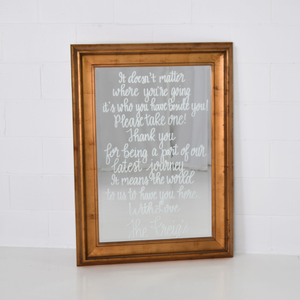 It doesn't matter
where you're going
it's who you have beside you!
Please take one!
Thank you
for being a part of our
latest journey
It means the world
to us to have you here
With love
The